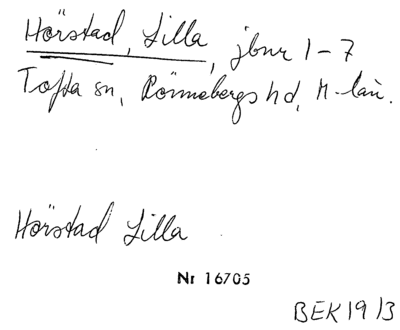 Hörstad, Lilla, jbnr 1-7
Tofta sn, Rönnebergs hd, M-län.
Hörstad Lilla
Nr 16705
BEK 19/3